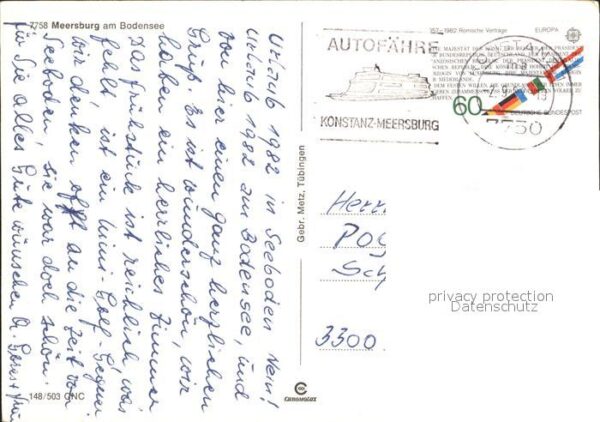 7758 Meersburg am Bodensee
Urlaub 1982 in Seeboden nein!
Urlaub 1982 am Bodensee, und
von hier einen ganz herzlichen
Gruß. Es ist wunderschön, wir
haben ein herrliches Zimmer
Das Frühstück ist reichlich, was
fehlt ist ein Mini-Golf-Gegner
wir denken oft an die Zeit von
Seeboden, sie war doch schön.
für Sie alles Gute wünschen
148/503 CNC
Gebr. Metz, Tübingen
CHROMOLUX
AUTOFÄHRE
KONSTANZ-MEERSBURG
1957-1982 Römische Verträge
EUROPA
60
DEUTSCHE BUNDESPOST
7750
Herr
Po
Sc
3300
privacy protection
Datenschutz